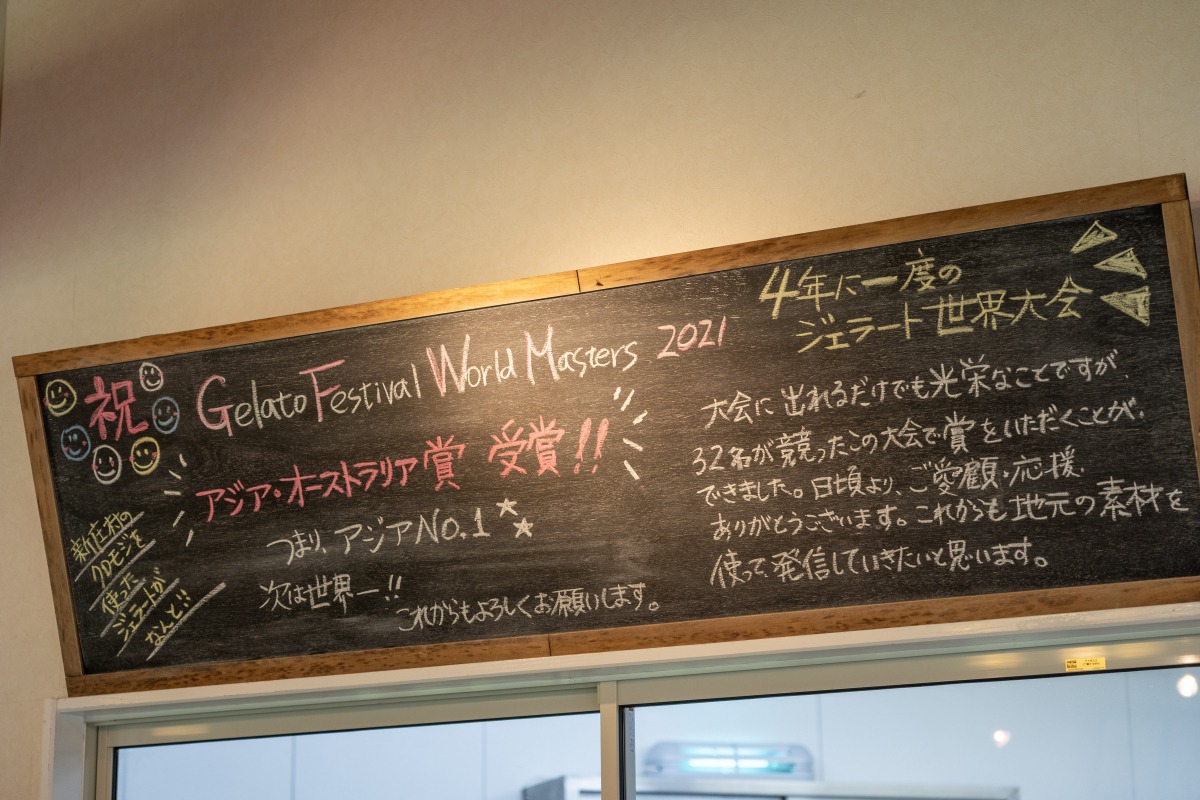 祝
Gelato Festival World Masters 2021
アジア・オーストラリア賞 受賞!!
つまり、アジアNo.1
次は世界一!!
これからもよろしくお願いします。
新庄村の
クロモジを
使った
ジェラートが
なんと!!
4年に一度の
ジェラート世界大会
大会に出れるだけでも光栄なことですが、
32名が競ったこの大会で賞をいただくことが、
できました。日頃より、ご愛顧・応援、
ありがとうございます。これからも地元の素材を
使って、発信していきたいと思います。